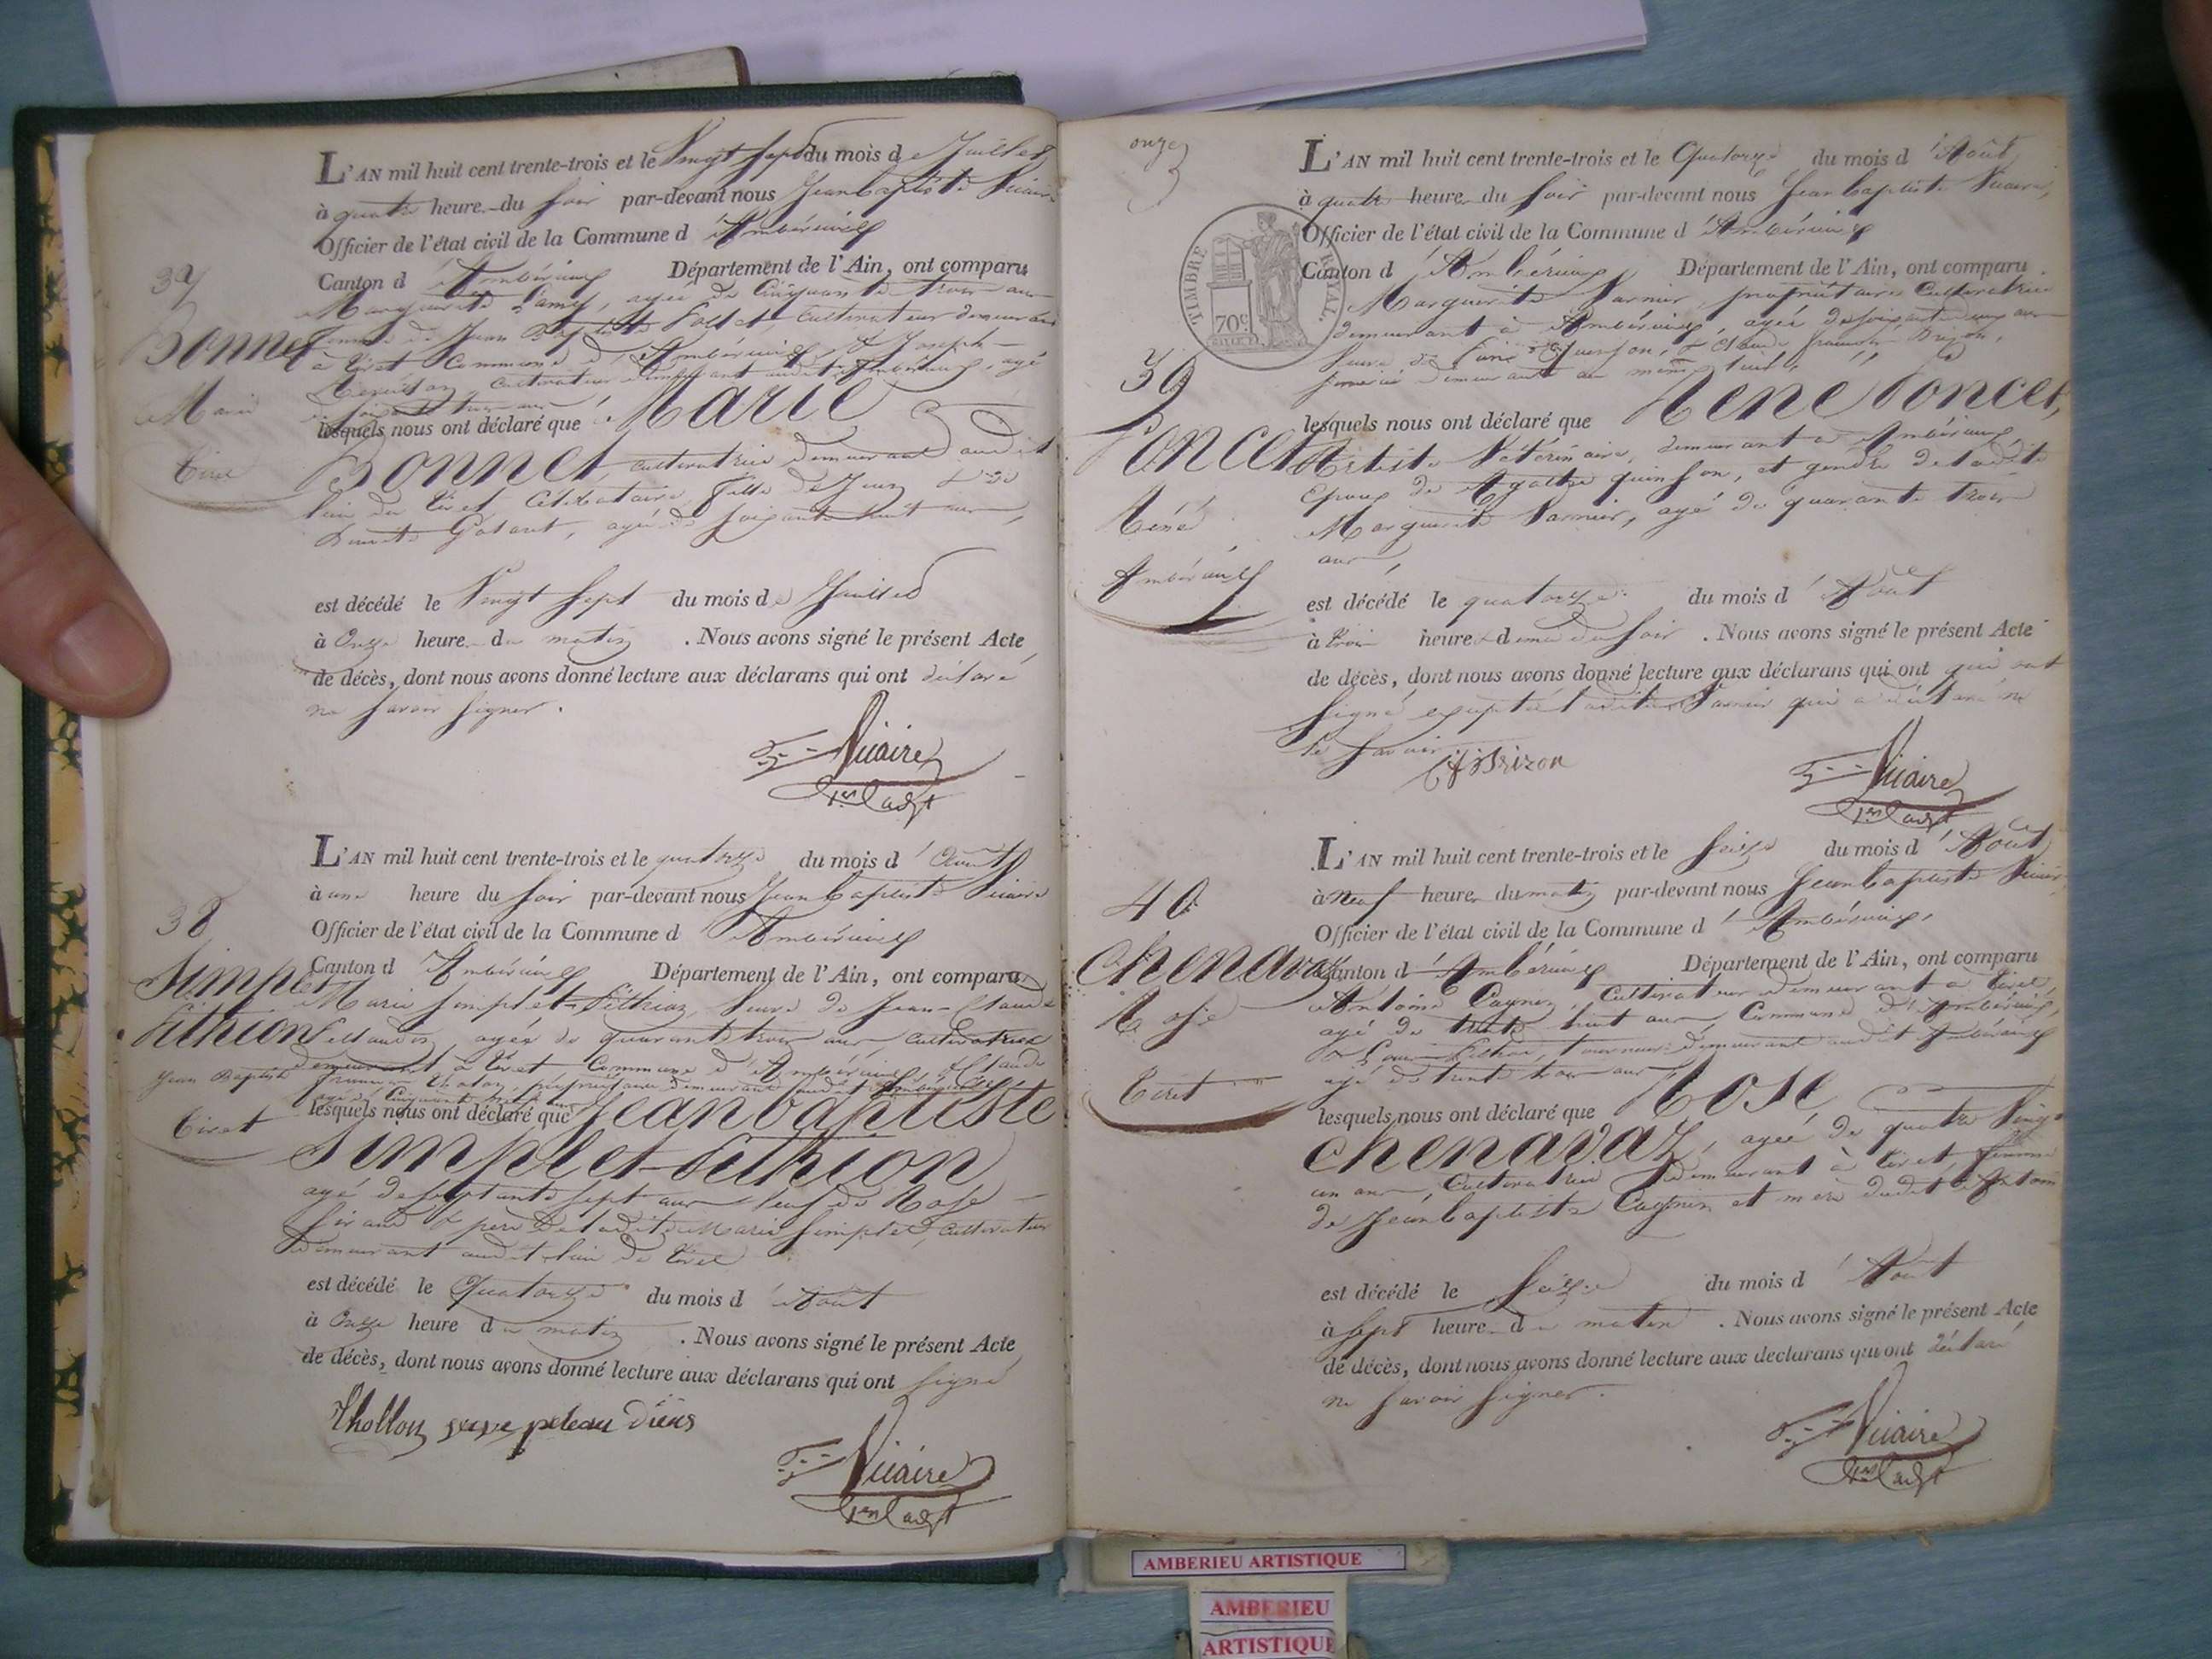 37
Bonnet
Marie
Tiret
L'AN mil huit cent trente-trois et le Vingt sept du mois de Juillet
à quatre heure du soir par-devant nous Jean Baptiste Vicaire
Officier de l'état civil de la Commune d'Ambérieux
Canton d'Ambérieux Département de l'Ain, ont comparu
Marguerite Lamy, agée de Cinquante trois ans
femme de Jean Baptiste cultivateur demeurant
à Tiret Commune d'Ambérieux, & Joseph
cultivateur demeurant audit Ambérieux, agé
de soixante trois ans
lesquels nous ont déclaré que Marie
Bonnet cultivatrice demeurant audit
lieu de Tiret, Célibataire, fille de Jean & de
agée de soixante huit ans,
est décédé le Vingt sept du mois de Juillet
à Onze heure du matin . Nous avons signé le présent Acte
de décès, dont nous avons donné lecture aux déclarans qui ont déclaré
ne savoir signer.
Vicaire
1er adjt
38
Simplet
Pithion
Jean Baptiste
Tiret
L'AN mil huit cent trente-trois et le quatorze du mois d'Août
à une heure du soir par-devant nous Jean Baptiste Vicaire
Officier de l'état civil de la Commune d'Ambérieux
Canton d'Ambérieux Département de l'Ain, ont comparu
Marie Simplet-Pithion, Veuve de Jean-Claude
agée de quarante trois ans cultivatrice
demeurant à Tiret Commune d'Ambérieux, & Claude
propriétaire demeurant audit Ambérieux
agé de Cinquante
lesquels nous ont déclaré que Jean baptiste
Simplet-Pithion
agé de septante sept ans veuf de Rose
& père de ladite Marie Simplet, cultivateur
demeurant audit lieu de Tiret
est décédé le Quatorze du mois d'Août
à Onze heure du matin . Nous avons signé le présent Acte
de décès, dont nous avons donné lecture aux déclarans qui ont signé
Thollon
Vicaire
1er adjt
onze
TIMBRE ROYAL.
70c
39
Poncet
René
Ambérieux
L'AN mil huit cent trente-trois et le Quatorze du mois d'Août
à quatre heure du soir par-devant nous Jean baptiste Vicaire,
Officier de l'état civil de la Commune d'Ambérieux
Canton d'Ambérieux Département de l'Ain, ont comparu
Marguerite Varnier, propriétaire Cultivatrice
demeurant à Ambérieux, agée de soixante ans
Veuve de Quinson, & Claude françois Brizon,
demeurant au même lieu,
lesquels nous ont déclaré que René Poncet,
Artiste Vétérinaire, demeurant à Ambérieux
Epoux de Agathe quinson, et gendre de ladite
Marguerite Varnier, agé de quarante trois
ans,
est décédé le quatorze du mois d'Août
à trois heure & demie du soir . Nous avons signé le présent Acte
de décès, dont nous avons donné lecture aux déclarans qui ont qui ont
signé excepté ladite Varnier qui a déclaré ne
le savoir
Brizon
Vicaire
1er adjt
40
Chenavaz
Rose
Tiret
L'AN mil huit cent trente-trois et le Seize du mois d'Août
à Neuf heure du matin par-devant nous Jean baptiste Vicaire
Officier de l'état civil de la Commune d'Ambérieux,
Canton d'Ambérieux Département de l'Ain, ont comparu
Antoine Cagnin, Cultivateur demeurant à Tiret,
agé de trente huit ans, Commune d'Ambérieux,
& Louis tourneur demeurant audit Ambérieux
agé de trente trois ans,
lesquels nous ont déclaré que Rose
Chenavaz, agée de quatre Vingt
un ans, Cultivatrice demeurant à Tiret, femme
de Jean baptiste Cagnin et mère dudit Antoine
est décédé le Seize du mois d'Août
à sept heure du matin . Nous avons signé le présent Acte
de décès, dont nous avons donné lecture aux déclarans qui ont déclaré
ne savoir signer.
Vicaire
1er adjt
AMBERIEU ARTISTIQUE
AMBERIEU
ARTISTIQUE